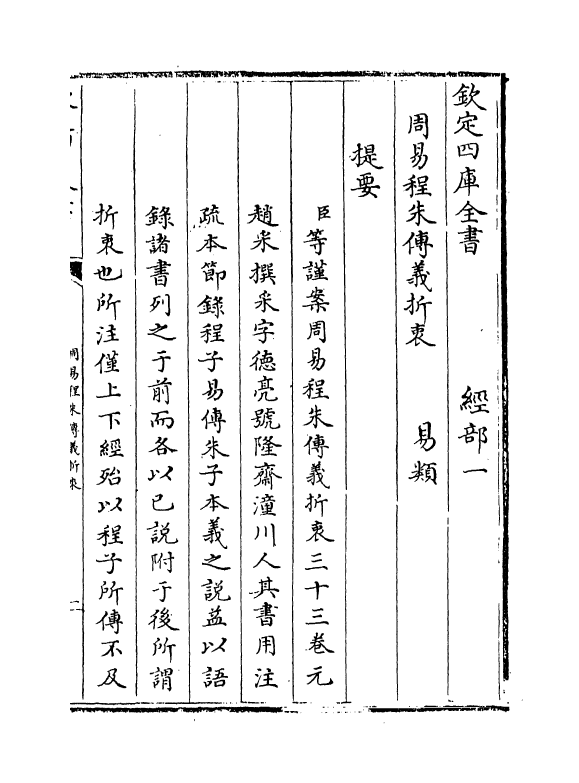 欽定四庫全書　經部一
周易程朱傳義折衷　易類
提要
臣等謹案周易程朱傳義折衷三十三卷元
趙采撰采字德亮號隆齋潼川人其書用注
疏本節錄程子易傳朱子本義之說益以語
錄諸書列之于前而各以已說附于後所謂
折衷也所注僅上下經殆以程子所傳不及
周易程朱傳義折衷